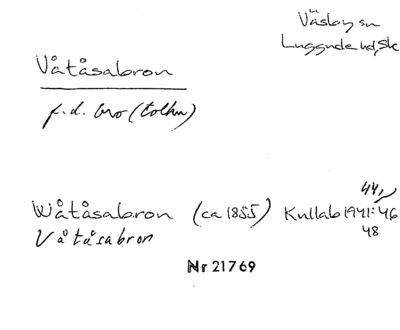 Väsby sn
Luggude hd, Sk
Våtåsabron
f.d. bro (tolkn)
44,
Wåtåsabron (ca 1855) Kullab 1941:46
Våtåsabron
48
Nr 21769